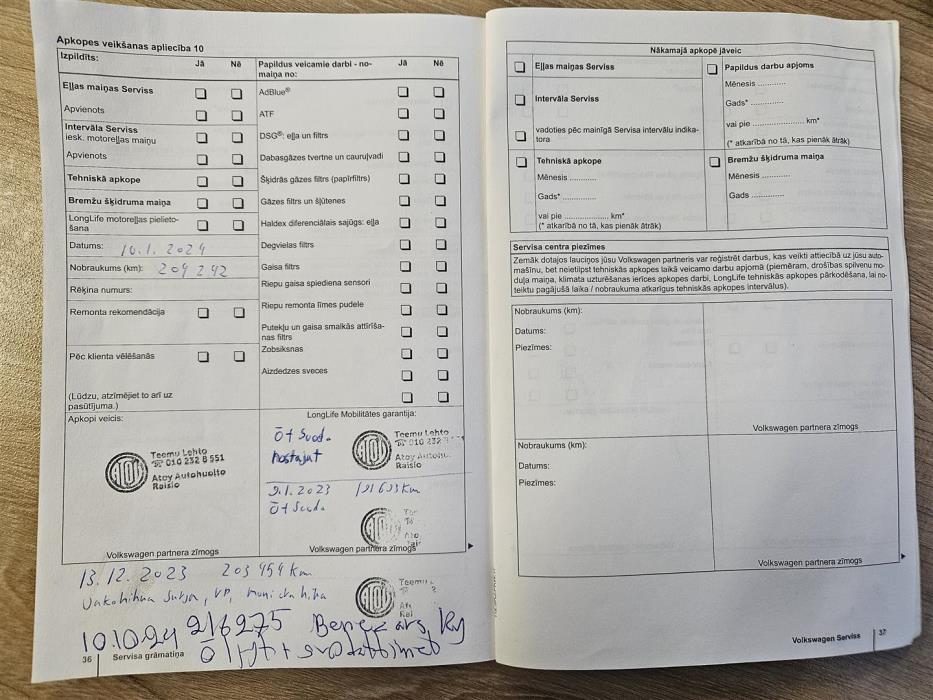 Apkopes veikšanas apliecība 10
Izpildīts: Jā Nē
Eļļas maiņas Serviss
Apvienots
Intervāla Serviss
iesk. motoreļļas maiņu
Apvienots
Tehniskā apkope
Bremžu šķidruma maiņa
LongLife motoreļļas pielieto-
šana
Datums: 10.1.2024
Nobraukums (km): 204 242
Rēķina numurs:
Remonta rekomendācija
Pēc klienta vēlēšanās
(Lūdzu, atzīmējiet to arī uz
pasūtījuma.)
Apkopi veicis:
Teemu Lehto
010 232 8 551
Atoy Autohuolto
Raisio
Volkswagen partnera zīmogs
Papildus veicamie darbi - no- Jā Nē
maiņa no:
AdBlue®
ATF
DSG®: eļļa un filtrs
Dabasgāzes tvertne un cauruļvadi
Šķidrās gāzes filtrs (papīrfiltrs)
Gāzes filtrs un šļūtenes
Haldex diferenciālais sajūgs: eļļa
Degvielas filtrs
Gaisa filtrs
Riepu gaisa spiediena sensori
Riepu remonta līmes pudele
Putekļu un gaisa smalkās attīrīša-
nas filtrs
Zobsiksnas
Aizdedzes sveces
LongLife Mobilitātes garantija:
Teemu Lehto
010 232
Atoy Autohu
Raisio
9.1.2023 191 633 km
Volkswagen partnera zīmogs
13.12.2023 203 454 km
Teemu
10.10.24 216275
36 Servisa grāmatiņa
Nākamajā apkopē jāveic
Eļļas maiņas Serviss
Intervāla Serviss
vadoties pēc mainīgā Servisa intervālu indika-
tora
Papildus darbu apjoms
Mēnesis ............
Gads* ..............
vai pie ...................... km*
(* atkarībā no tā, kas pienāk ātrāk)
Tehniskā apkope
Mēnesis ...........
Gads* .............
vai pie .................. km*
(* atkarībā no tā, kas pienāk ātrāk)
Bremžu šķidruma maiņa
Mēnesis ............
Gads ..............
Servisa centra piezīmes
Zemāk dotajos lauciņos jūsu Volkswagen partneris var reģistrēt darbus, kas veikti attiecībā uz jūsu auto-
mašīnu, bet neietilpst tehniskās apkopes laikā veicamo darbu apjomā (piemēram, drošības spilvenu mo-
duļa maiņa, klimata uzturēšanas ierīces apkopes darbi, LongLife tehniskās apkopes pārkodēšana, lai no-
teiktu pagājušā laika / nobraukuma atkarīgus tehniskās apkopes intervālus).
Nobraukums (km):
Datums:
Piezīmes:
Volkswagen partnera zīmogs
Nobraukums (km):
Datums:
Piezīmes:
Volkswagen partnera zīmogs
Volkswagen Serviss 37